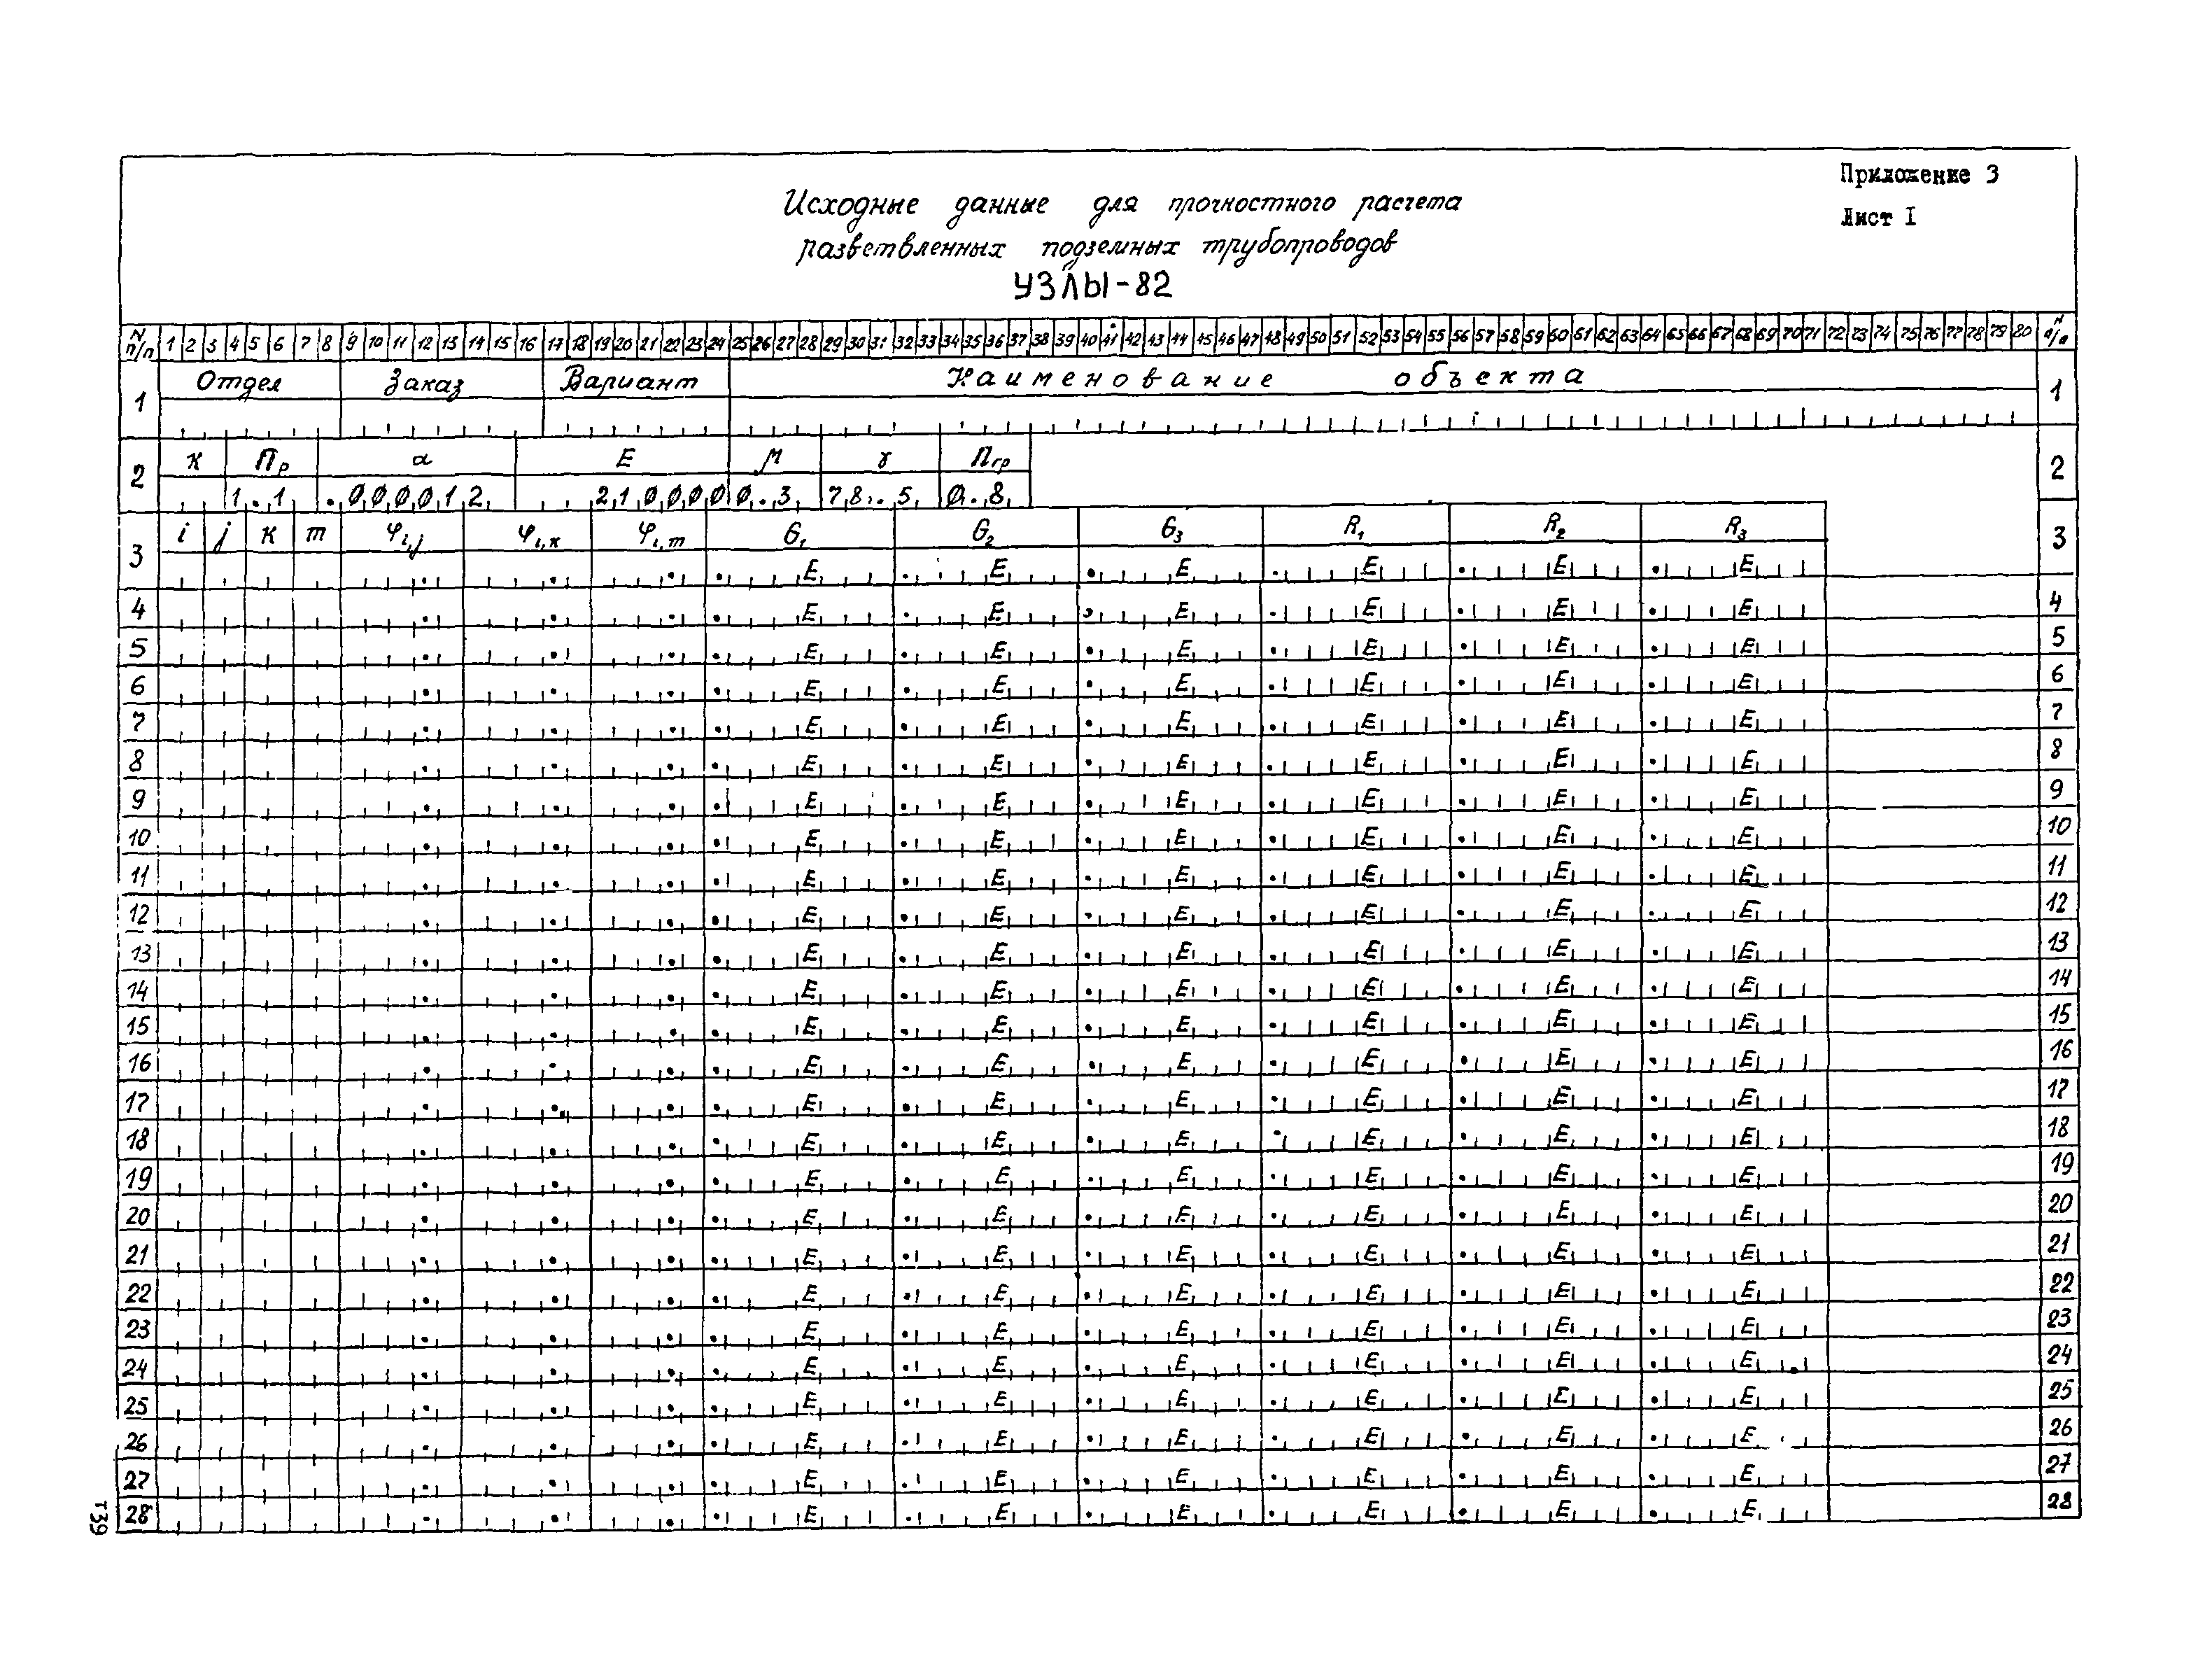 Приложение 3
Лист I
Исходные данные для прочностного расчета
разветвленных подземных трубопроводов
УЗЛЫ-82
N п/п 1 2 3 4 5 6 7 8 9 10 11 12 13 14 15 16 17 18 19 20 21 22 23 24 25 26 27 28 29 30 31 32 33 34 35 36 37 38 39 40 41 42 43 44 45 46 47 48 49 50 51 52 53 54 55 56 57 58 59 60 61 62 63 64 65 66 67 68 69 70 71 72 73 74 75 76 77 78 79 80 N п/п
1 Отдел Заказ Вариант Наименование объекта 1
2 К Пр α E М γ Пгр 2
1.1 .000012 210000 0.3 78.5 0.8
3 i j к m φi,j φi,к φi,m G1 G2 G3 R1 R2 R3 3
. . . . E . E . E . E . E . E
4 . . . . E . E . E . E . E . E 4
5 . . . . E . E . E . E . E . E 5
6 . . . . E . E . E . E . E . E 6
7 . . . . E . E . E . E . E . E 7
8 . . . . E . E . E . E . E . E 8
9 . . . . E . E . E . E . E . E 9
10 . . . . E . E . E . E . E . E 10
11 . . . . E . E . E . E . E . E 11
12 . . . . E . E . E . E . E . E 12
13 . . . . E . E . E . E . E . E 13
14 . . . . E . E . E . E . E . E 14
15 . . . . E . E . E . E . E . E 15
16 . . . . E . E . E . E . E . E 16
17 . . . . E . E . E . E . E . E 17
18 . . . . E . E . E . E . E . E 18
19 . . . . E . E . E . E . E . E 19
20 . . . . E . E . E . E . E . E 20
21 . . . . E . E . E . E . E . E 21
22 . . . . E . E . E . E . E . E 22
23 . . . . E . E . E . E . E . E 23
24 . . . . E . E . E . E . E . E 24
25 . . . . E . E . E . E . E . E 25
26 . . . . E . E . E . E . E . E 26
27 . . . . E . E . E . E . E . E 27
28 . . . . E . E . E . E . E . E 28